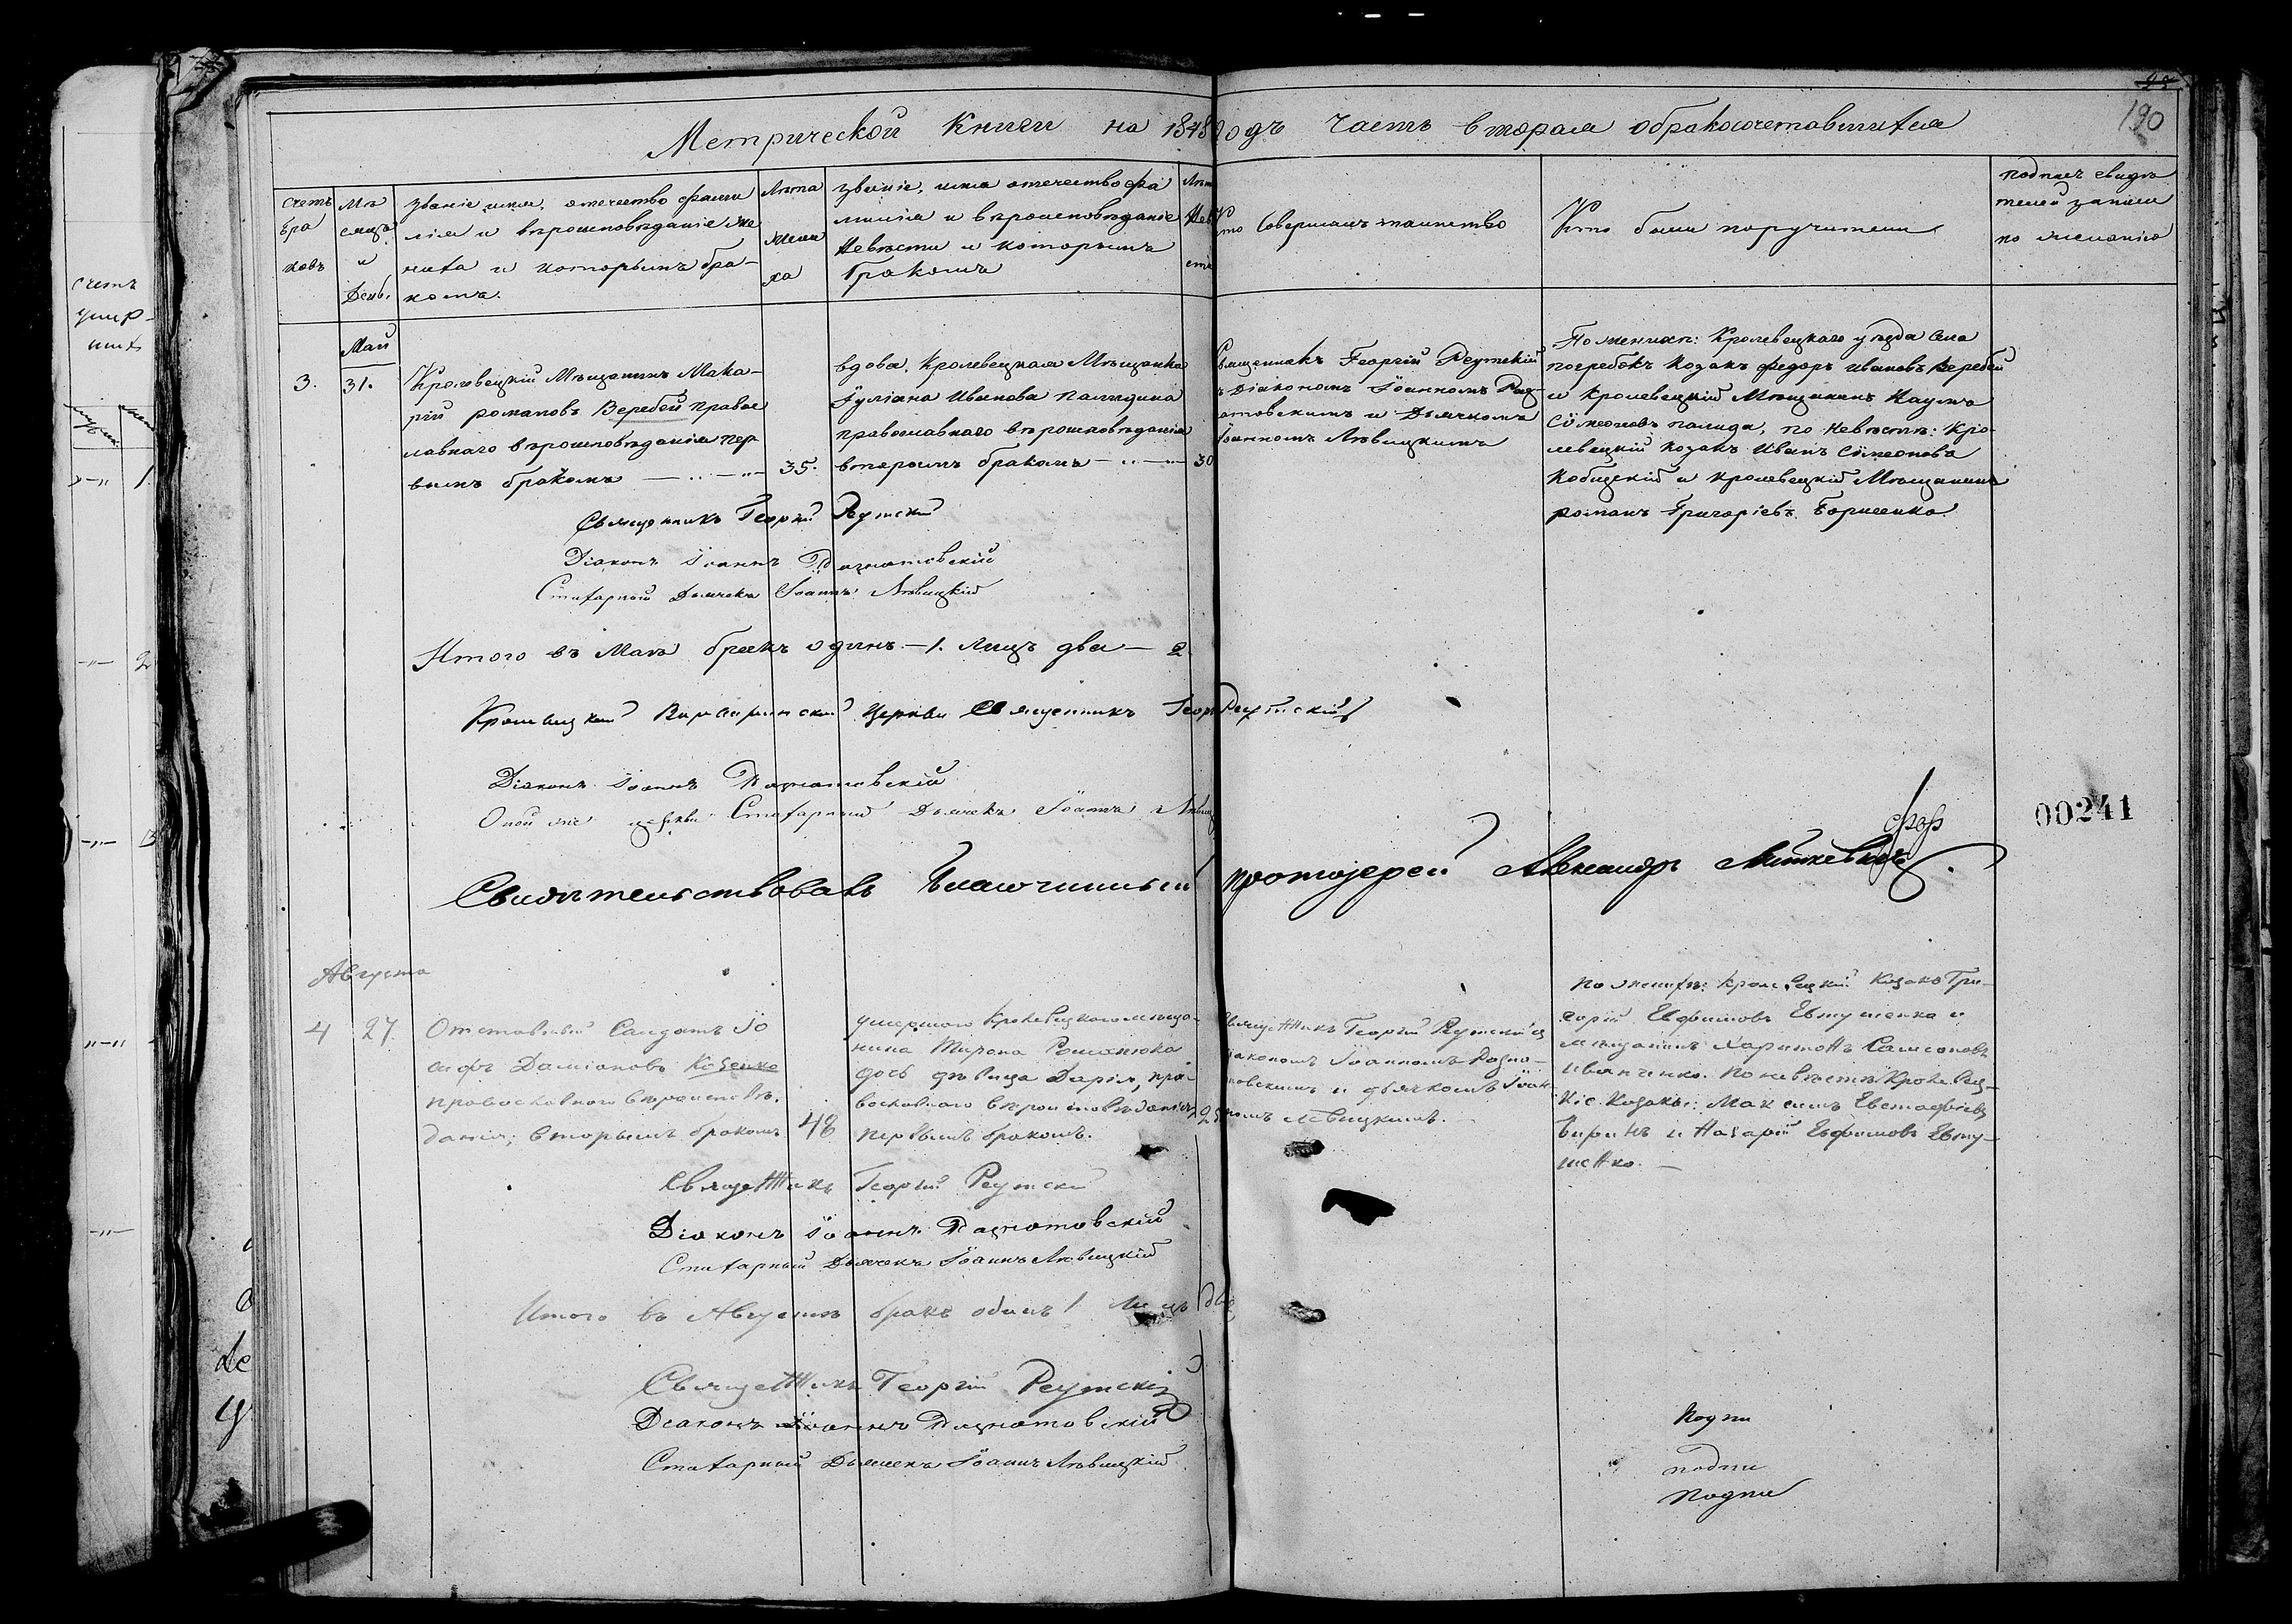 190
Метрической Книги на 1848 годъ Часть вторая о бракосочетавшихся
счетъ браковъ
Мѣсяцъ и День.
Званіе, имя, отечество фамилія и вѣроисповѣданіе жениха и которымъ бракомъ.
Лѣта жениха
Званіе, имя отечество фамилія и вѣроисповѣданіе Невѣсты и которымъ бракомъ
Лѣта Невѣсты
Кто совершалъ таинство
Кто были поручители
подпись свидѣтелей записи по желанію
Май
3.
31.
Кролевецкій Мѣщанинъ Мака-
рій романовъ Веребей правос
лавнаго вѣроисповѣданія пер
вымъ бракомъ
35.
вдова, Кролевецкая Мѣщанка
Іуліана Иванова
православнаго вѣроисповѣданія
вторымъ бракомъ
30
Священникъ Георгій Реутскій
съ Діакономъ Іоанномъ Раз-
натовскимъ и Дьячкомъ
Іоанномъ Лѣвицкимъ
По жених: Кролевецкаго уѣзда села
погребокъ Козакъ федоръ ивановъ Веребей
и Кролевецкій Мѣщанинъ Наумъ
Сѵмеоновъ палида, по Невѣстѣ: Кро-
левецкій козакъ Иванъ Сѵмеоновъ
Кобицкій и кролевецкій Мѣщанинъ
романъ Григоріевъ Борисенко.
Священникъ Георгій Реутскій
Діаконъ Іоаннъ Разнатовскій
Стихарный Дьячекъ Іоаннъ Лѣвицкій
Итого въ Маѣ бракъ одинъ — 1. лицъ два — 2
Кролевецкой Варваринской Церкви Священникъ Георгій Реутскій
Діаконъ Іоаннъ Разнатовскій
Оной же церкви Стихарный Дьячекъ Іоаннъ Лѣвиц
00241
Свидѣтельствовалъ Благочинный протоіерей Александръ Миткевичъ.
Августа
4
27.
Отставной Солдатъ Іо
сифъ Даміановъ Козенко
православнаго вѣроисповѣ-
данія; вторымъ бракомъ
48
умершаго Кролевецкаго мѣща-
нина Мирона Романюка
дочь дѣвица Дарія, пра-
вославнаго вѣроисповѣданія,
первымъ бракомъ.
Священникъ Георгій Реутскій съ
діакономъ Іоанномъ Разна-
товскимъ и дьячкомъ Іоан-
номъ Левицкимъ.
По женихѣ: Кролевецкій Козакъ Гри-
горій Евфимовъ Евтушенко и
мѣщанинъ Харитонъ Самсоновъ
Иванченко. По невѣстѣ Кролевец-
кіе Козаки: Максимъ Евстафіевъ
Бирикъ и Назарій Евфимовъ Евту-
шенко. —
Священникъ Георгій Реутскій
Діаконъ Іоаннъ Разнатовскій
Стихарный Дьячекъ Іоаннъ Лѣвицкій
Итого въ Августѣ бракъ одинъ 1 Лицъ два
Священникъ Георгій Реутскій
Діаконъ Іоаннъ Разнатовскій
Стихарный Дьячекъ Іоаннъ Лѣвицкій
Подпи
подпи
Подпи